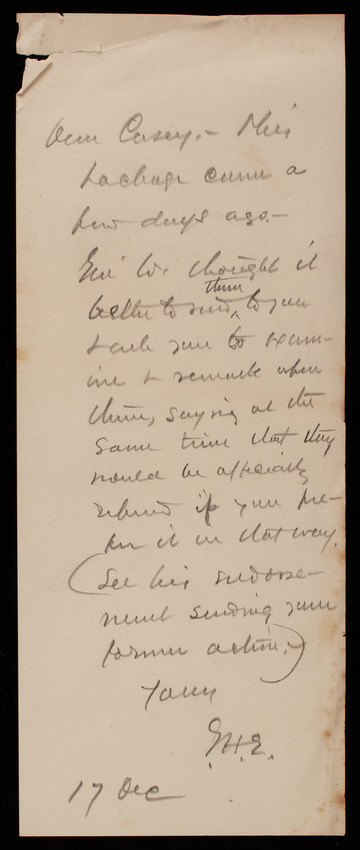 Dear Casey,- This
package came a
few days ago.-
Gen'l W. thought it
better to send them to you
& ask you to exam-
ine & remark upon
them, saying at the
same time that they
would be officially
referred if you pre-
fer it in that way.
(See his endorse-
ment sending your
former action.-)
Yours
G.H.E.
17 Dec